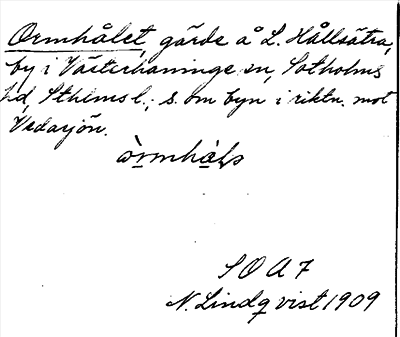 Ormhålet, gärde å L. Hållsätra,
by i Västerhaninge sn, Sotholms
hd, Sthlms l.; s. om byn i riktn. mot
Vedasjön.
SOA 7
N. Lindqvist 1909